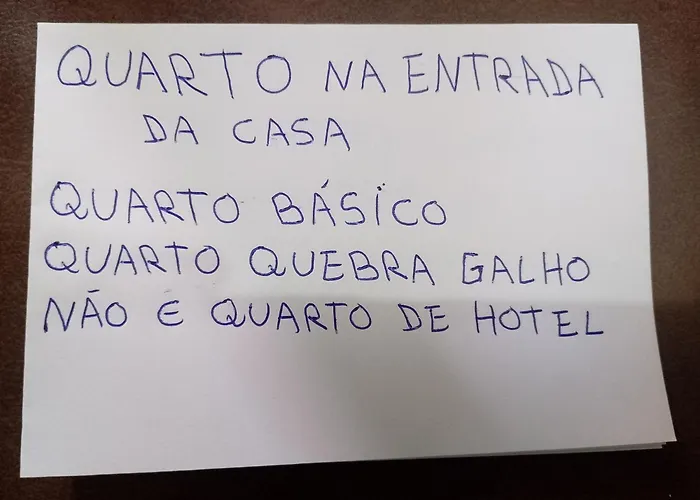 QUARTO NA ENTRADA
DA CASA
QUARTO BÁSICO
QUARTO QUEBRA GALHO
NÃO E QUARTO DE HOTEL